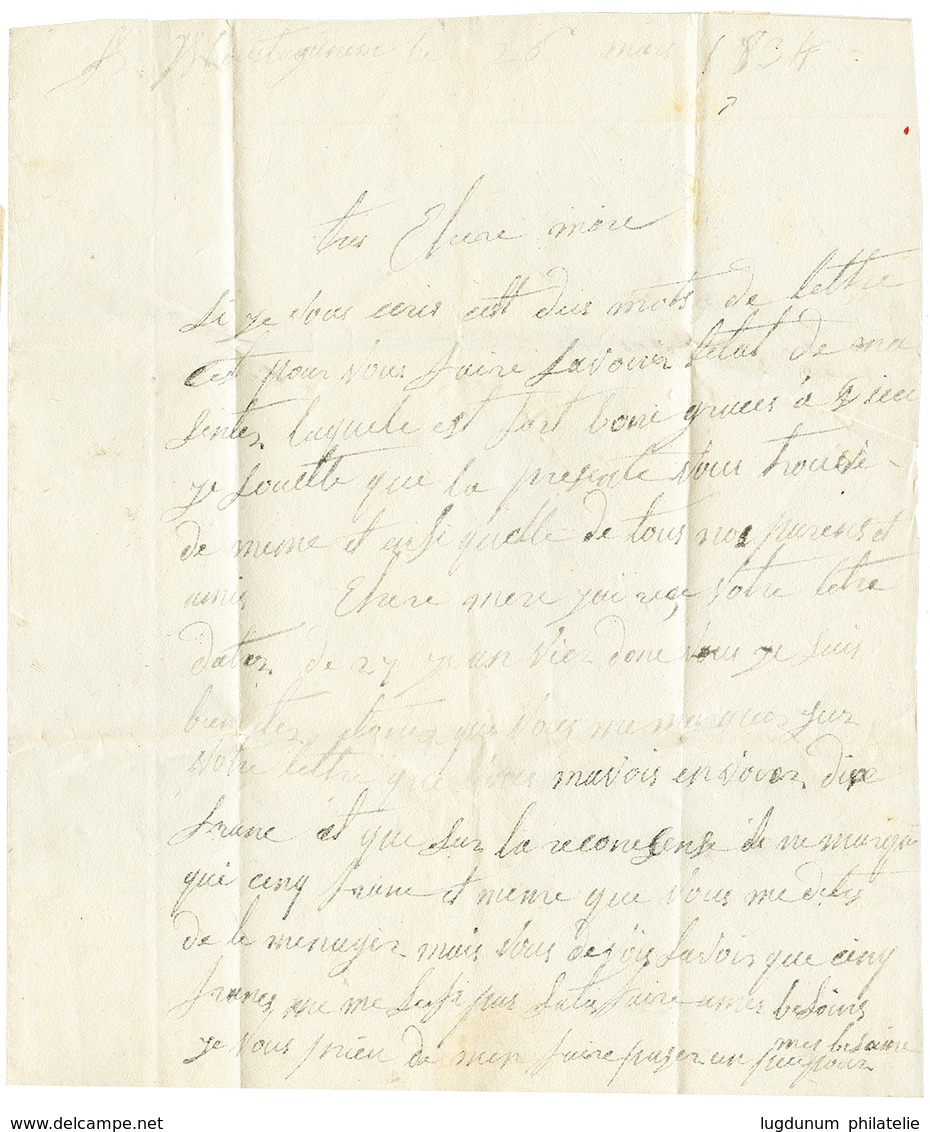 26 mars 1834
tres Chere mère
Si je vous ecris cest deus mots de lettre
cest pour vous faire savoir letat de ma
sentez laquele est fort bone graces à Dieu
je souette que la presente vous trouve
de meme et quelle de tous nos parens et
amis Chere mere jai reçe votre letre
datez de 27 janvier done vous je suis
bien que vous me marques sur
votre lettre que vous mavois envoiez dix
franc et que sur la il ne marqu
que cinq franc et meme que vous me dites
de le menager mais vous devois savois que cinq
francs ne me pas faire a mes besoins
je vous prieu de men faire paser un peu pour
mes besoins
www.delcampe.net lugdunum philatelie